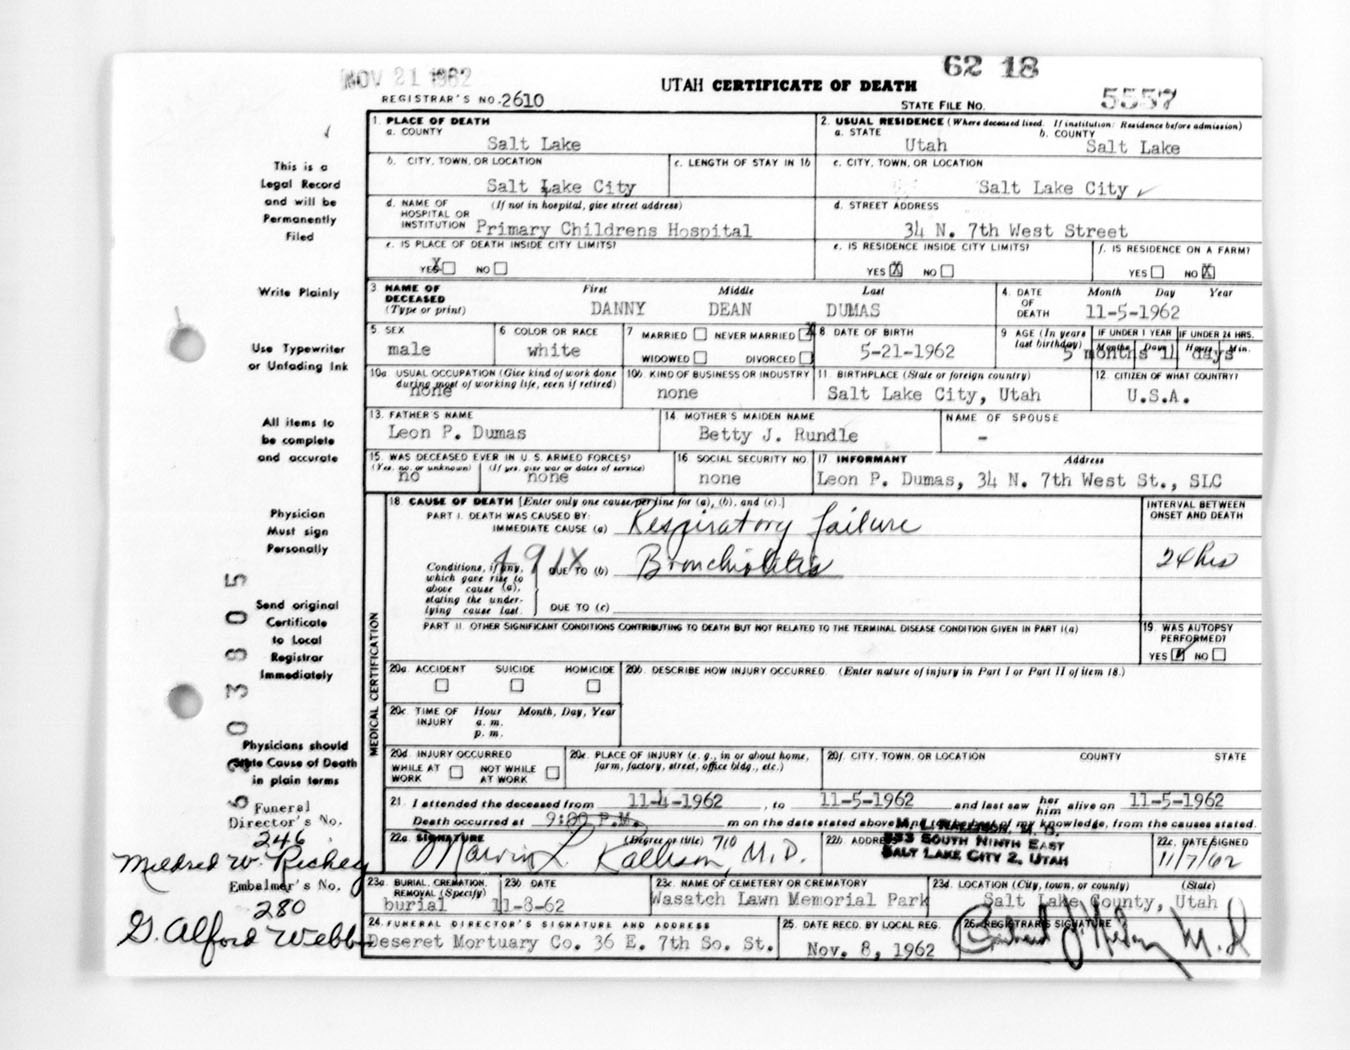 NOV 21 1962
62 18
UTAH CERTIFICATE OF DEATH
REGISTRAR'S NO. 2610
STATE FILE NO. 5557
This is a
Legal Record
and will be
Permanently
Filed
Write Plainly
Use Typewriter
or Unfading Ink
All items to
be complete
and accurate
Physician
Must sign
Personally
Send original
Certificate
to Local
Registrar
Immediately
Physicians should
State Cause of Death
in plain terms
Funeral
Director's No.
246
Mildred W. Richey
Embalmer's No.
280
G. Alford Webb
1. PLACE OF DEATH
a. COUNTY
Salt Lake
2. USUAL RESIDENCE (Where deceased lived. If institution: Residence before admission)
a. STATE b. COUNTY
Utah Salt Lake
b. CITY, TOWN, OR LOCATION
Salt Lake City
c. LENGTH OF STAY IN 1b
c. CITY, TOWN, OR LOCATION
Salt Lake City
d. NAME OF HOSPITAL OR INSTITUTION (If not in hospital, give street address)
Primary Childrens Hospital
d. STREET ADDRESS
34 N. 7th West Street
e. IS PLACE OF DEATH INSIDE CITY LIMITS?
YES X NO
e. IS RESIDENCE INSIDE CITY LIMITS?
YES X NO
f. IS RESIDENCE ON A FARM?
YES NO X
3. NAME OF DECEASED (Type or print)
First Middle Last
DANNY DEAN DUMAS
4. DATE OF DEATH
Month Day Year
11-5-1962
5. SEX
male
6 COLOR OR RACE
white
7 MARRIED NEVER MARRIED X
WIDOWED DIVORCED
8 DATE OF BIRTH
5-21-1962
9 AGE (In years last birthday)
IF UNDER 1 YEAR IF UNDER 24 HRS.
Months Days Hours Min.
5 months 11 days
10a USUAL OCCUPATION (Give kind of work done during most of working life, even if retired)
none
10b. KIND OF BUSINESS OR INDUSTRY
none
11. BIRTHPLACE (State or foreign country)
Salt Lake City, Utah
12. CITIZEN OF WHAT COUNTRY?
U.S.A.
13. FATHER'S NAME
Leon P. Dumas
14 MOTHER'S MAIDEN NAME
Betty J. Rundle
NAME OF SPOUSE
-
15. WAS DECEASED EVER IN U.S. ARMED FORCES?
(Yes, no, or unknown) (If yes, give war or dates of service)
no none
16 SOCIAL SECURITY NO.
none
17 INFORMANT Address
Leon P. Dumas, 34 N. 7th West St., SLC
MEDICAL CERTIFICATION
18 CAUSE OF DEATH [Enter only one cause per line for (a), (b), and (c).]
PART I. DEATH WAS CAUSED BY:
IMMEDIATE CAUSE (a) Respiratory failure
INTERVAL BETWEEN ONSET AND DEATH
24 hrs
Conditions, if any, which gave rise to above cause (a), stating the underlying cause last.
491X
DUE TO (b) Bronchiolitis
DUE TO (c)
PART II. OTHER SIGNIFICANT CONDITIONS CONTRIBUTING TO DEATH BUT NOT RELATED TO THE TERMINAL DISEASE CONDITION GIVEN IN PART I(a)
19. WAS AUTOPSY PERFORMED?
YES NO
20a. ACCIDENT SUICIDE HOMICIDE
20b. DESCRIBE HOW INJURY OCCURRED. (Enter nature of injury in Part I or Part II of item 18.)
20c. TIME OF INJURY Hour Month, Day, Year
a. m.
p. m.
20d. INJURY OCCURRED
WHILE AT WORK NOT WHILE AT WORK
20e. PLACE OF INJURY (e. g., in or about home, farm, factory, street, office bldg., etc.)
20f. CITY, TOWN, OR LOCATION COUNTY STATE
21. I attended the deceased from 11-4-1962, to 11-5-1962 and last saw her him alive on 11-5-1962
Death occurred at P.M. m on the date stated above, and to the best of my knowledge, from the causes stated.
22a. SIGNATURE (Degree or title)
Marvin L. Rallison, M.D.
22b. ADDRESS
M. L. RALLISON, M. D.
333 SOUTH NINTH EAST
SALT LAKE CITY 2, UTAH
22c. DATE SIGNED
11/7/62
23a. BURIAL, CREMATION, REMOVAL (Specify)
burial
23b. DATE
11-8-62
23c. NAME OF CEMETERY OR CREMATORY
Wasatch Lawn Memorial Park
23d. LOCATION (City, town, or county) (State)
Salt Lake County, Utah
24. FUNERAL DIRECTOR'S SIGNATURE AND ADDRESS
Deseret Mortuary Co. 36 E. 7th So. St.
25. DATE RECD. BY LOCAL REG.
Nov. 8, 1962
26. REGISTRAR'S SIGNATURE
M.D.